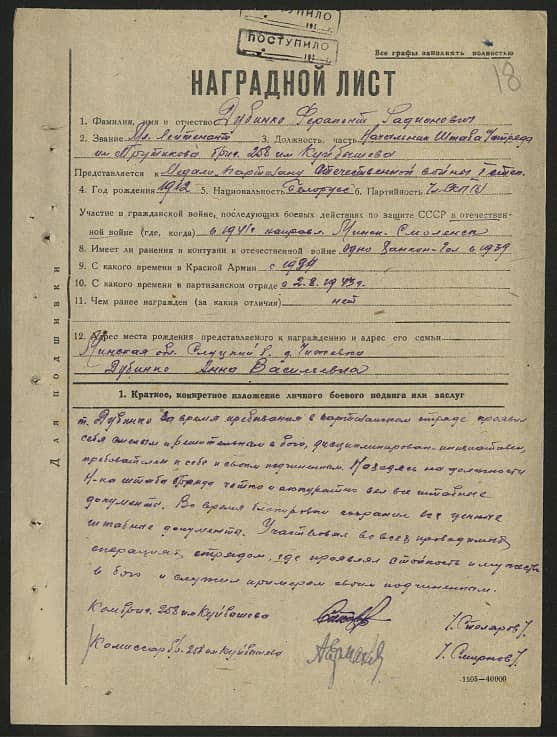 ПОСТУПИЛО
ПОСТУПИЛО
194 г.
Все графы заполнять полностью
18
НАГРАДНОЙ ЛИСТ
1. Фамилия, имя и отчество Дубинко Ферапонт Радионович
2. Звание Мл. лейтенант 3. Должность, часть Начальник Штаба отряда
им бриг. 258 им Куйбышева
Представляется к Медали Партизану Отечественной войны I степ.
4. Год рождения 1912 5. Национальность Белорусс 6. Партийность Чл.ВКП(б)
Участие в гражданской войне, последующих боевых действиях по защите СССР в отечествен-
ной войне (где, когда) в 1941г направл. Минск. Смоленск
8. Имеет ли ранения и контузии в отечественной войне одно в 1939
9. С какого времени в Красной Армии с 1934
10. С какого времени в партизанском отряде с 2.8.1943г.
11. Чем ранее награжден (за какия отличия) нет
12. Адрес места рождения представляемого к награждению и адрес его семьи
Минская обл. Слуцкий р. д.
Дубинко Анна Васильевна
Для подшивки
1. Краткое, конкретное изложение личного боевого подвига или заслуг
т. Дубинко за время пребывания в партизанском отряде проявил
себя смелым и решительным в бою, дисциплинирован, инициативен,
требователен к себе и своим подчиненным. Находясь на должности
Н-ка штаба отряда четко и аккуратно вел все штабные
документы. Во время блокировки сохранил все ценные
штабные документы. Участвовал во всех проводимых
операциях отрядом, где проявлял стойкость и мужество
в бою и служил примером своим подчиненным.
Комбриг. 258 им Куйбышева /Столяров/.
/Комиссар бр. 258 им Куйбышева /. Смирнов/.
1105—40000